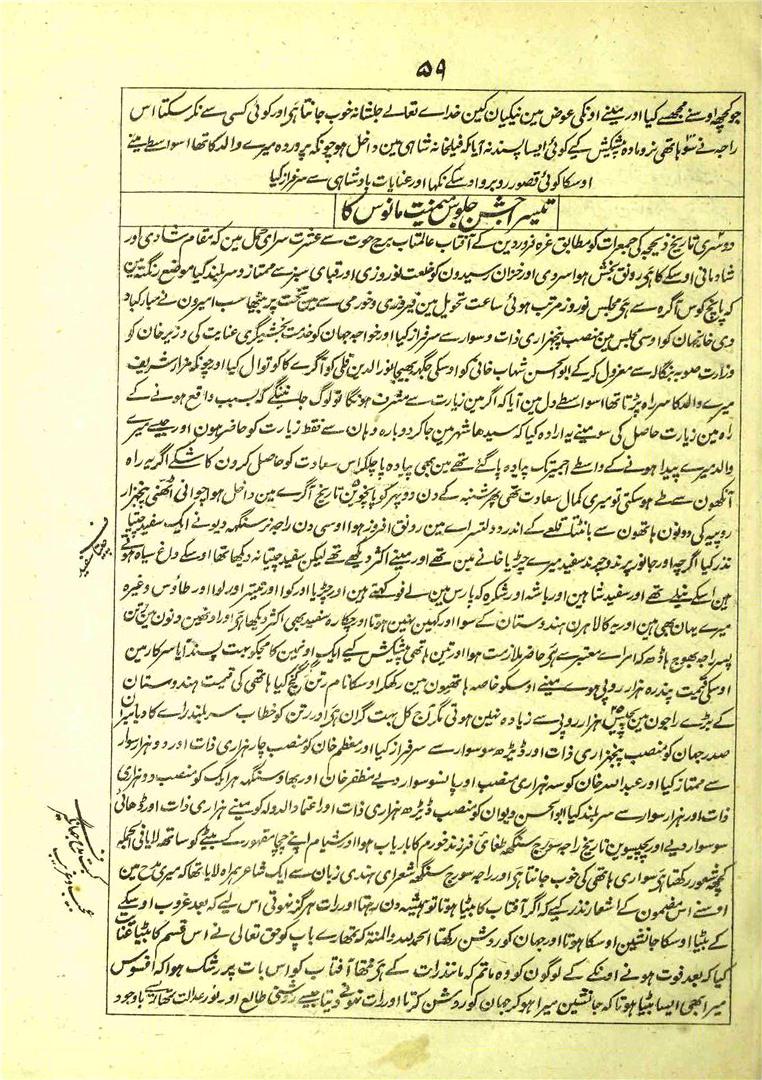 ۵۹
جو کچھ اوسنے مجھسے کیا اور مینے اونکی عوض مین نیکیان کین خداے تعالے جلشانہ خوب جانتا ہی اور کوئی کسی سے نکر سکتا اس
راجہ نے سو ہاتھی نر و مادہ پیشکش کیے کوئی ایسا پسند نہ آیا کہ فیلخانہ شاہی مین داخل ہو چونکہ پروردہ میرے والد کا تھا اسواسطے مینے
اوسکا کوئی قصور روبرو اوسکے نکہا اور عنایات بادشاہی سے سرفراز کیا
تیسرا جشن جلوس میمنت مانوس کا
دوسری تاریخ ذیحجہ کی جمعرات کو مطابق غرہ فروردین کے آفتاب عالمتاب برج حوت سے عشرت سرای حمل مین کہ مقام شادی اور
شادمانی اوسکے کا ہی رونق بخش ہوا سردی اور خزان رسیدون کو خلعت نوروزی اور قبای سبز سے ممتاز و سربلند کیا موضع رنگتہ مین
کہ پانچ کوس آگرہ سے ہی مجلس نوروز مرتب ہوئی ساعت تحویل مین فیروزی و خورمی سے مین تخت پر بیٹھا سب امیرون نے مبارکباد
دی خانجہان کو اوسی مجلس مین منصب پنجہزاری ذات و سوار سے سرفراز کیا اور خواجہ جہان کو خدمت بخشیگری عنایت کی وزیر خان کو
وزارت صوبہ بنگالہ سے معزول کر کے ابوالحسن شہاب خانی کو اوسکی جگہہ بھیجا نور الدین قلی کو آگرے کا کوتوال کیا اور چونکہ مزار شریف
میرے والد کا سر راہ پڑتا تھا اسواسطے دل مین آیا کہ اگر مین زیارت سے مشرف ہونگا تو لوگ جانینگے کہ بسبب واقع ہونے کے
راہ مین زیارت حاصل کی سو مینے یہ ارادہ کیا کہ سیدھا شہر مین جا کر دوبارہ وہان سے فقط زیارت کو حاضر ہون اور جیسے میرے
والد میرے پیدا ہونے کے واسطے اجمیر تک پیادہ پا گئے تھے مین بھی پیادہ پا چلکر اس سعادت کو حاصل کرون کاشکے اگر یہ راہ
آنکھون سے طے ہو سکتی تو میری کمال سعادت تھی پھر شنبہ کے دن دوپہر کو پانچوین تاریخ آگرے مین داخل ہوا چوانی اٹھنی پنجہزار
روپیہ کی دونون ہاتھون سے بانٹتا قلعے کے اندر دولتسرا مین رونق افروز ہوا اوسی دن راجہ نرسنگہہ دیو نے ایک سفید چیتا
نذر کیا اگرچہ اور جانور پرند و چرند سفید میرے چڑیا خانے مین تھے اور مینے اکثر دیکھے تھے لیکن سفید چیتا نہ دیکھا تھا اوسکے داغ سیاہ ہوتے
ہین اسکے نیلے تھے اور سفید شاہین اور باشہ اور شکرہ کہ پارس مین کہتے ہین اور چڑیا اور کوا اور تیتر اور لوا اور طاؤس وغیرہ
میرے یہان بھی ہین اور یہ کالا ہرن ہندوستان کے سوا اور کہین نہین ہوتا اور چکارہ سفید بھی اکثر دیکھا ہی اور اونھین دنون مین رتن
پسر راجہ بھوج ہاڈہ کہ امراے معتبر سے ہی حاضر ملازمت ہوا اور تین ہاتھی پیشکش کیے ایک اونمین کا مجکو بہت پسند آیا سرکار مین
اوسکی قیمت پندرہ ہزار روپی ہوے مینے اوسکو خاصہ ہاتھیون مین رکھکر اوسکا نام رتن گج کیا ہاتھی کی قیمت ہندوستان
کے بڑے راجون مین پچیس ہزار روپی سے زیادہ نہین ہوتی مگر آج کل بہت گران ہی اور رتن کو خطاب سربلند راے کا دیا میران
صدر جہان کو منصب پنجہزاری ذات اور ڈیڑھ سو سوار سے سرفراز کیا اور معظم خان کو منصب چار ہزاری ذات اور دو ہزار سوار
سے ممتاز کیا اور عبداللہ خان کو سہ ہزاری منصب اور پانسو سوار دیے مظفر خان اور بھاوسنگہہ ہر ایک کو منصب دو ہزاری
ذات اور ہزار سوار سے سربلند کیا ابوالحسن دیوان کو منصب ڈیڑھ ہزاری ذات اور اعتماد الدولہ کو مینے ہزاری ذات اور ڈھائی
سو سوار دیے اور پچیسوین تاریخ راجہ سورج سنگھ طغائی فرزند خورم کا باریاب ہوا اور شیام اپنے چچا مقہور کے بیٹے کو ساتھ لایا فی الجملہ
کچھہ شعور رکھتا ہی سواری ہاتھی کی خوب جانتا ہی اور راجہ سورج سنگھ شعراے ہندی زبان سے ایک شاعر ہمراہ لایا تھا کہ میری مدح مین
اوسنے اس مضمون کے اشعار نذر کیے کہ اگر آفتاب کا بیٹا ہوتا تو ہمیشہ دن رہتا اور رات ہرگز نہوتی اس لیے کہ بعد غروب اوسکے
کے بیٹا اوسکا جانشین اوسکا ہوتا اور جہان کو روشن رکھتا الحمد للہ والمنۃ کہ تمھارے باپ کو حق تعالی نے اس قسم کا بیٹا عنایت
کیا کہ بعد فوت ہونے اونکے کے لوگون کو وہ ماتم کہ مانند رات کے ہی نہوا آفتاب کو اس بات پر رشک ہوا کہ افسوس
میرا بھی ایسا بیٹا ہوتا کہ جانشین میرا ہو کر جہان کو روشن کرتا اور رات نہونے دیتا جیسے روشنی طالع اور نور عدالت تمھارے سے باوجود